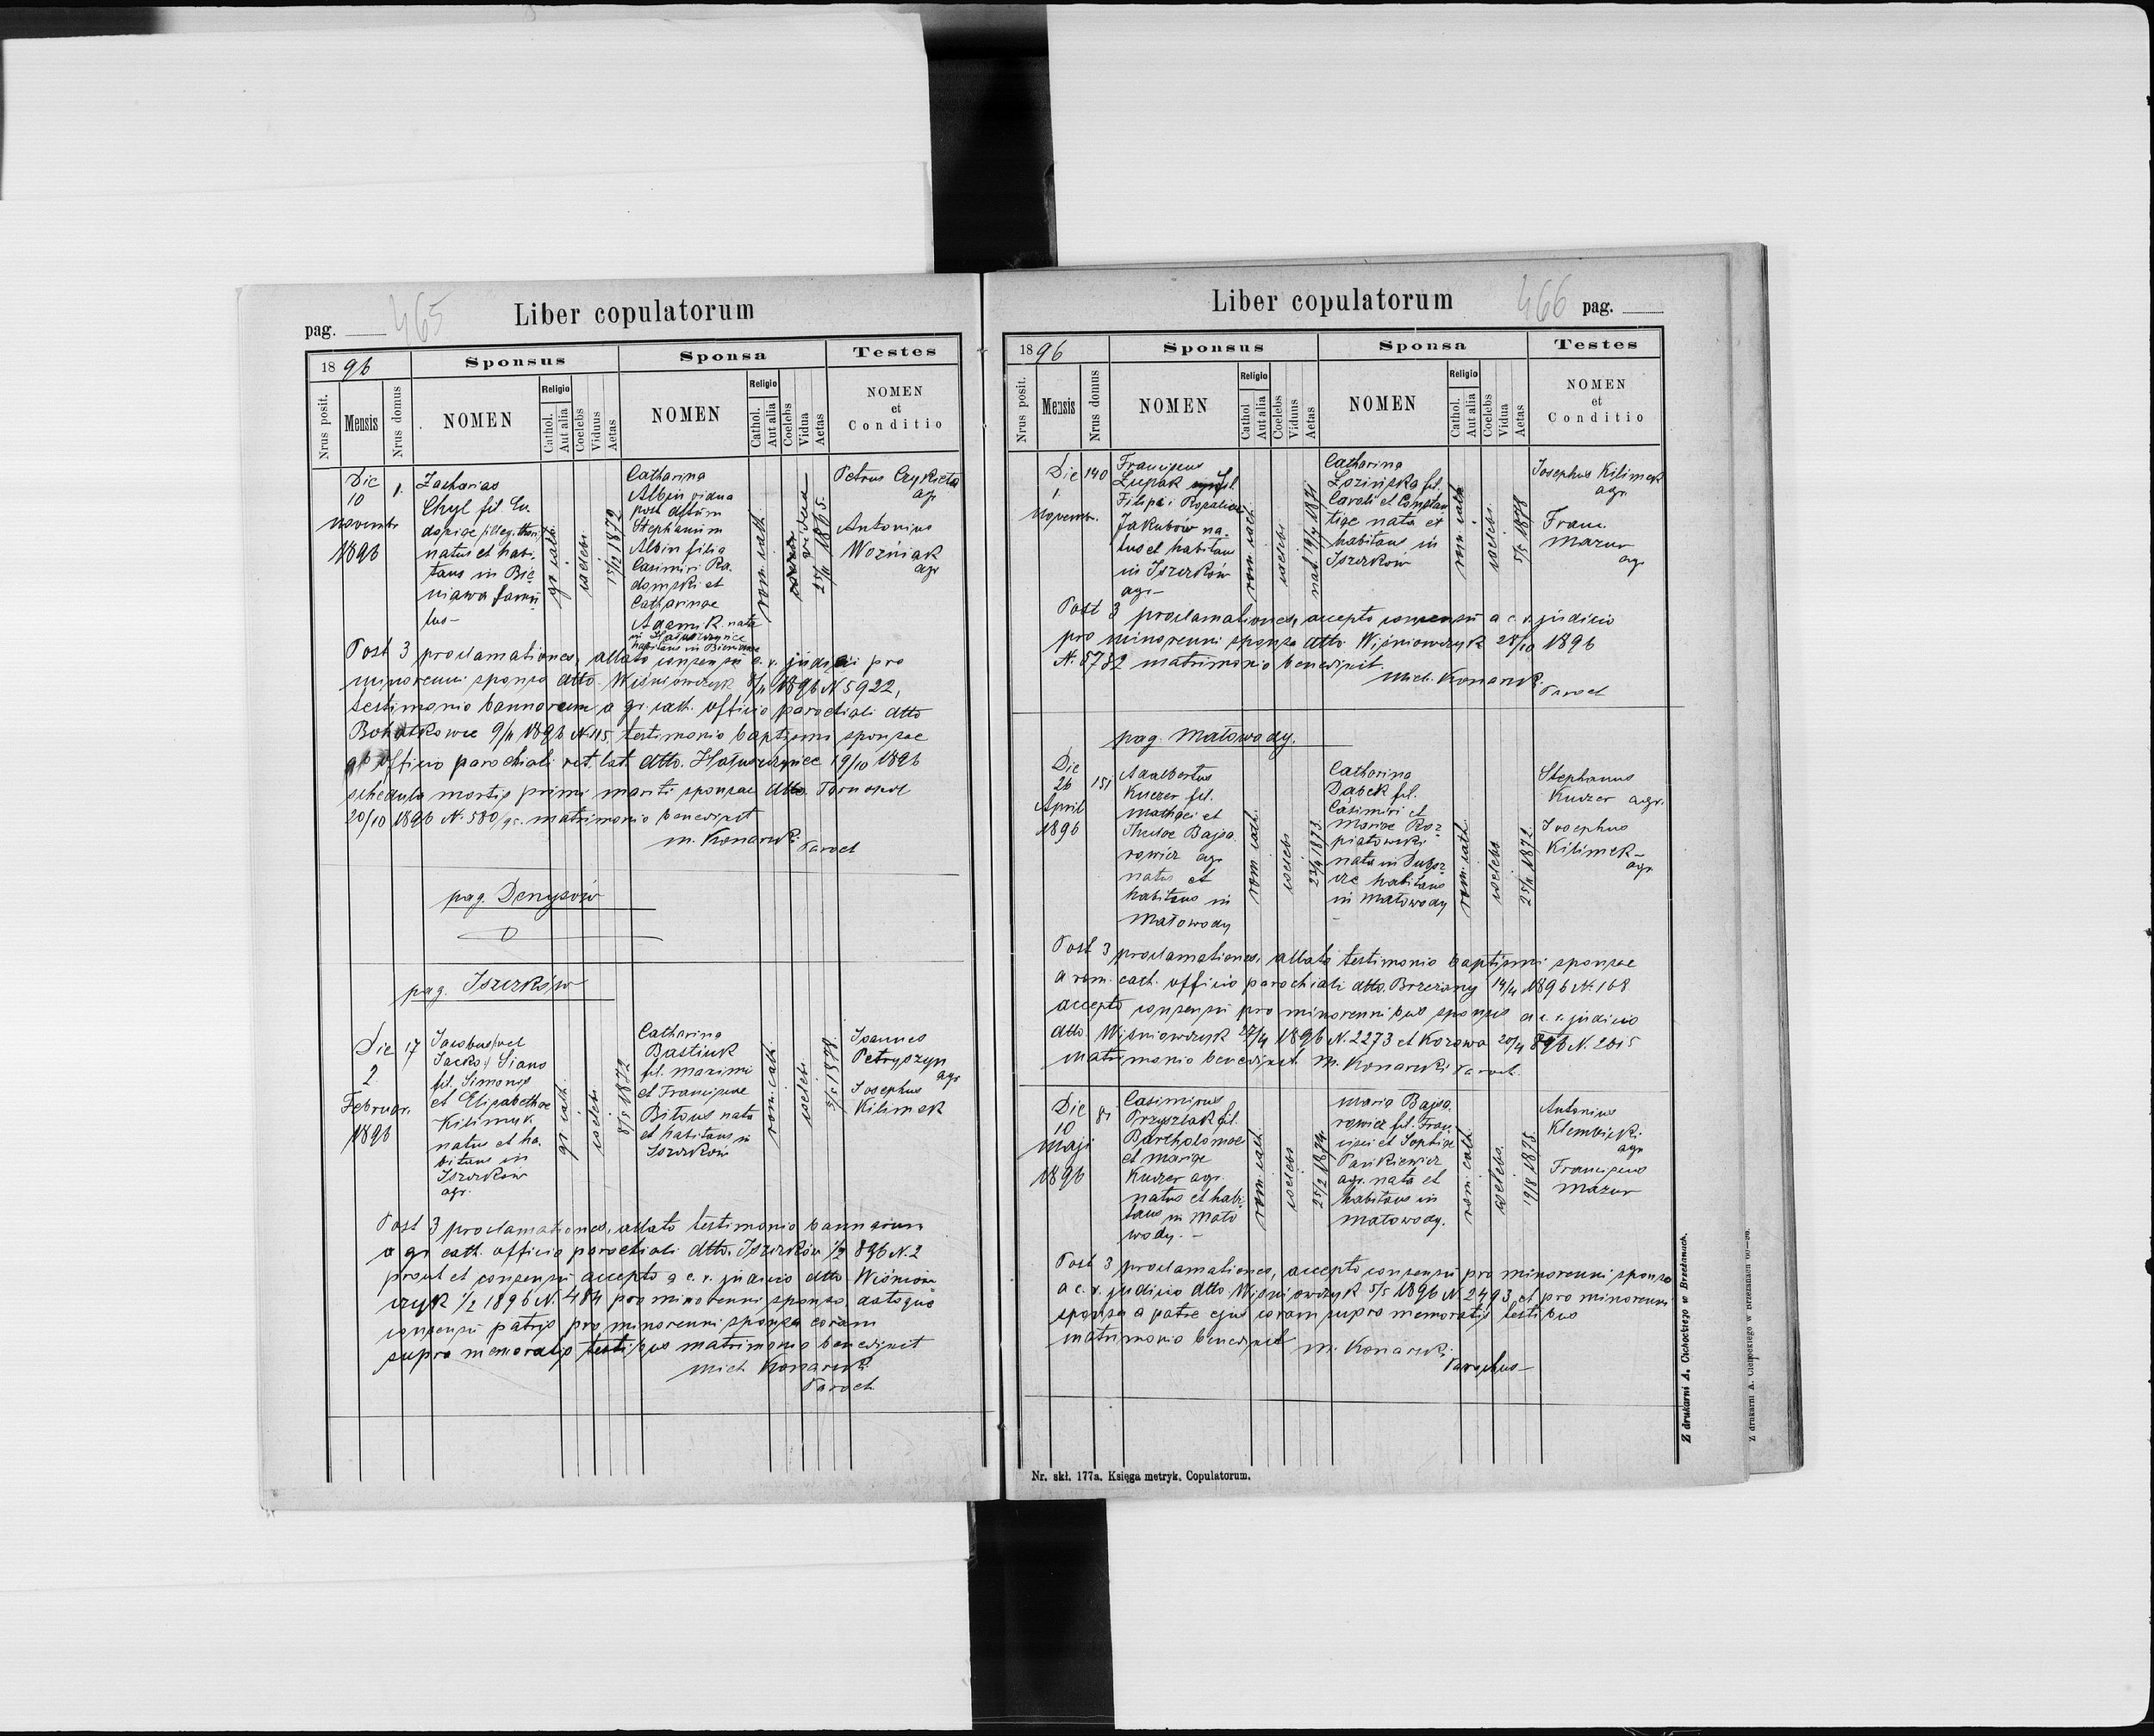 465
pag.
Liber copulatorum
1896
Sponsus
Sponsa
Testes
Nrus posit.
Mensis
Nrus domus
NOMEN
Religio
Cathol.
Aut alia
Coelebs
Viduus
Aetas
NOMEN
Religio
Cathol.
Aut alia
Coelebs
Vidua
Aetas
NOMEN
et
Conditio
Die
10
Novembr
1896
1.
Zacharias
Chyl fil. Eu
doxiae illeg. thori
natus et habi
tans in Bie
niawa famu
lus-
gr. cath.
coelebs
15/12 1872
Catharina
Albin vidua
post dttum
Stephanum
Albin filia
Casimiri Ra
domski et
Catharinae
Adamik nata
in Hałuszczyńce
habitans in Bieniawa
rom. cath.
vidua
25/11 1865.
Petrus Czykieta
agr
Antonius
Woźniak
agr
Post 3 proclamationes, allato consensu c. r. judicii pro
minorenni sponso dtto. Wiśniowczyk 8/11 1896 N 5922,
testimonio bannorum a gr. cath. officio parochiali dtto
Bohatkowce 9/11 1896 N. 115, testimonio baptismi sponsae
ab officio parochiali rit. lat. dtto. Hałuszczyńce 19/10 1896
schedula mortis primi mariti sponsae dtto. Tarnopol
20/10 1896 N. 580/96. matrimonio benedixit
M. Konarski
Paroch
pag. Denysów
pag. Iszczków
Die
2
Februar.
1896
17
Jacobus vel
Jacko Siano
fil. Simonis
et Elisabethae
Kilimyk
natus et ha
bitans in
Iszczków
agr.
gr. cath.
coelebs
8/5 1872
Catharina
Bastiuk
fil. Maximi
et Franciscae
Bitous nata
et habitans in
Iszczków
rom. cath.
coelebs
5/5 1878.
Joannes
Petryszyn
agr
Josephus
Kilimek
Post 3 proclamationes, allato testimonio bannorum
a gr cath. officio parochiali dtto. Iszczków 1/2 896 N. 2
prout et consensu accepto a c. r. judicio dtto Wiśniow
czyk 1/2 1896 N. 484 pro minorenni sponso, datoque
consensu patris pro minorenni sponsa coram
supra memoratis testibus matrimonio benedixit
Mich Konarski
Paroch
Liber copulatorum
466
pag.
1896
Sponsus
Sponsa
Testes
Nrus posit.
Mensis
Nrus domus
NOMEN
Religio
Cathol
Aut alia
Coelebs
Viduus
Aetas
NOMEN
Religio
Cathol.
Aut alia
Coelebs
Vidua
Aetas
NOMEN
et
Conditio
Die
1.
Novembr.
140
Franciscus
Łupak fil.
Filipi i Rozaliae
Jakubów na
tus et habitans
in Iszczków
agr-
rom. cath.
coelebs
Catharina
Łozińska fil.
Caroli et Constan
tiae nata et
habitans in
Iszczków
rom cath
coelebs.
5/5 1878
Josephus Kilimek
agr.
Franc.
Mazur
agr
Post 3 proclamationes, accepto consensu a c. r. judicio
pro minorenni sponsa dtto. Wiśniowczyk 28/10 1896
N. 5782 matrimonio benedixit.
Mich. Konarski
Paroch
pag. Małowody.
Die
26
April
1896
151
Adalbertus
Kuczer fil.
Mathaei et
Theclae Bajsa
rowicz agr
natus et
habitans in
Małowody
rom. cath.
coelebs
23/4 1873.
Catharina
Dąbek fil.
Casimiri et
Mariae Roz
piatowski
nata in
habitans
in Małowody
rom. cath.
coelebs
25/11 1872.
Stephanus
Kuczer agr.
Josephus
Kilimek-
agr
Post 3 proclamationes, allato testimonio baptismi sponsae
a rom. cath. officio parochiali dtto. Brzeżany 14/4 1896 N. 168
accepto consensu pro minorennibus sponsis a c. r. judicio
dtto Wiśniowczyk 27/4 1896 N. 2273 et Kozowa 20/4 896 N. 2015
matrimonio benedixit M. Konarski Paroch.
Die
10
Maji
1896
81
Casimirus
Przyszlak fil.
Bartholomaei
et Mariae
Kuczer agr.
natus et habi
tans in Mało
wody. -
rom. cath.
coelebs
25/2 1874.
Maria Bajsa
rowicz fil. Fran
cisci et Sophiae
Pańkiewicz
agr. nata et
habitans in
Małowody.
rom. cath.
coelebs.
19/8 1875.
Antonius
Klembicki
agr
Franciscus
Mazur
Post 3 proclamationes, accepto consensu pro minorenni sponso
a c. r. judicio dtto. Wiśniowczyk 5/5 1896 N. 2493, et pro minorenni
sponsa a patre ejus coram supra memoratis testibus
matrimonio benedixit M. Konarski
Parochus
Nr. skł. 177a. Księga metryk. Copulatorum.
Z drukarni A. Cichockiego w Brzeżanach.
Z drukarni A. Cichockiego w Brzeżanach